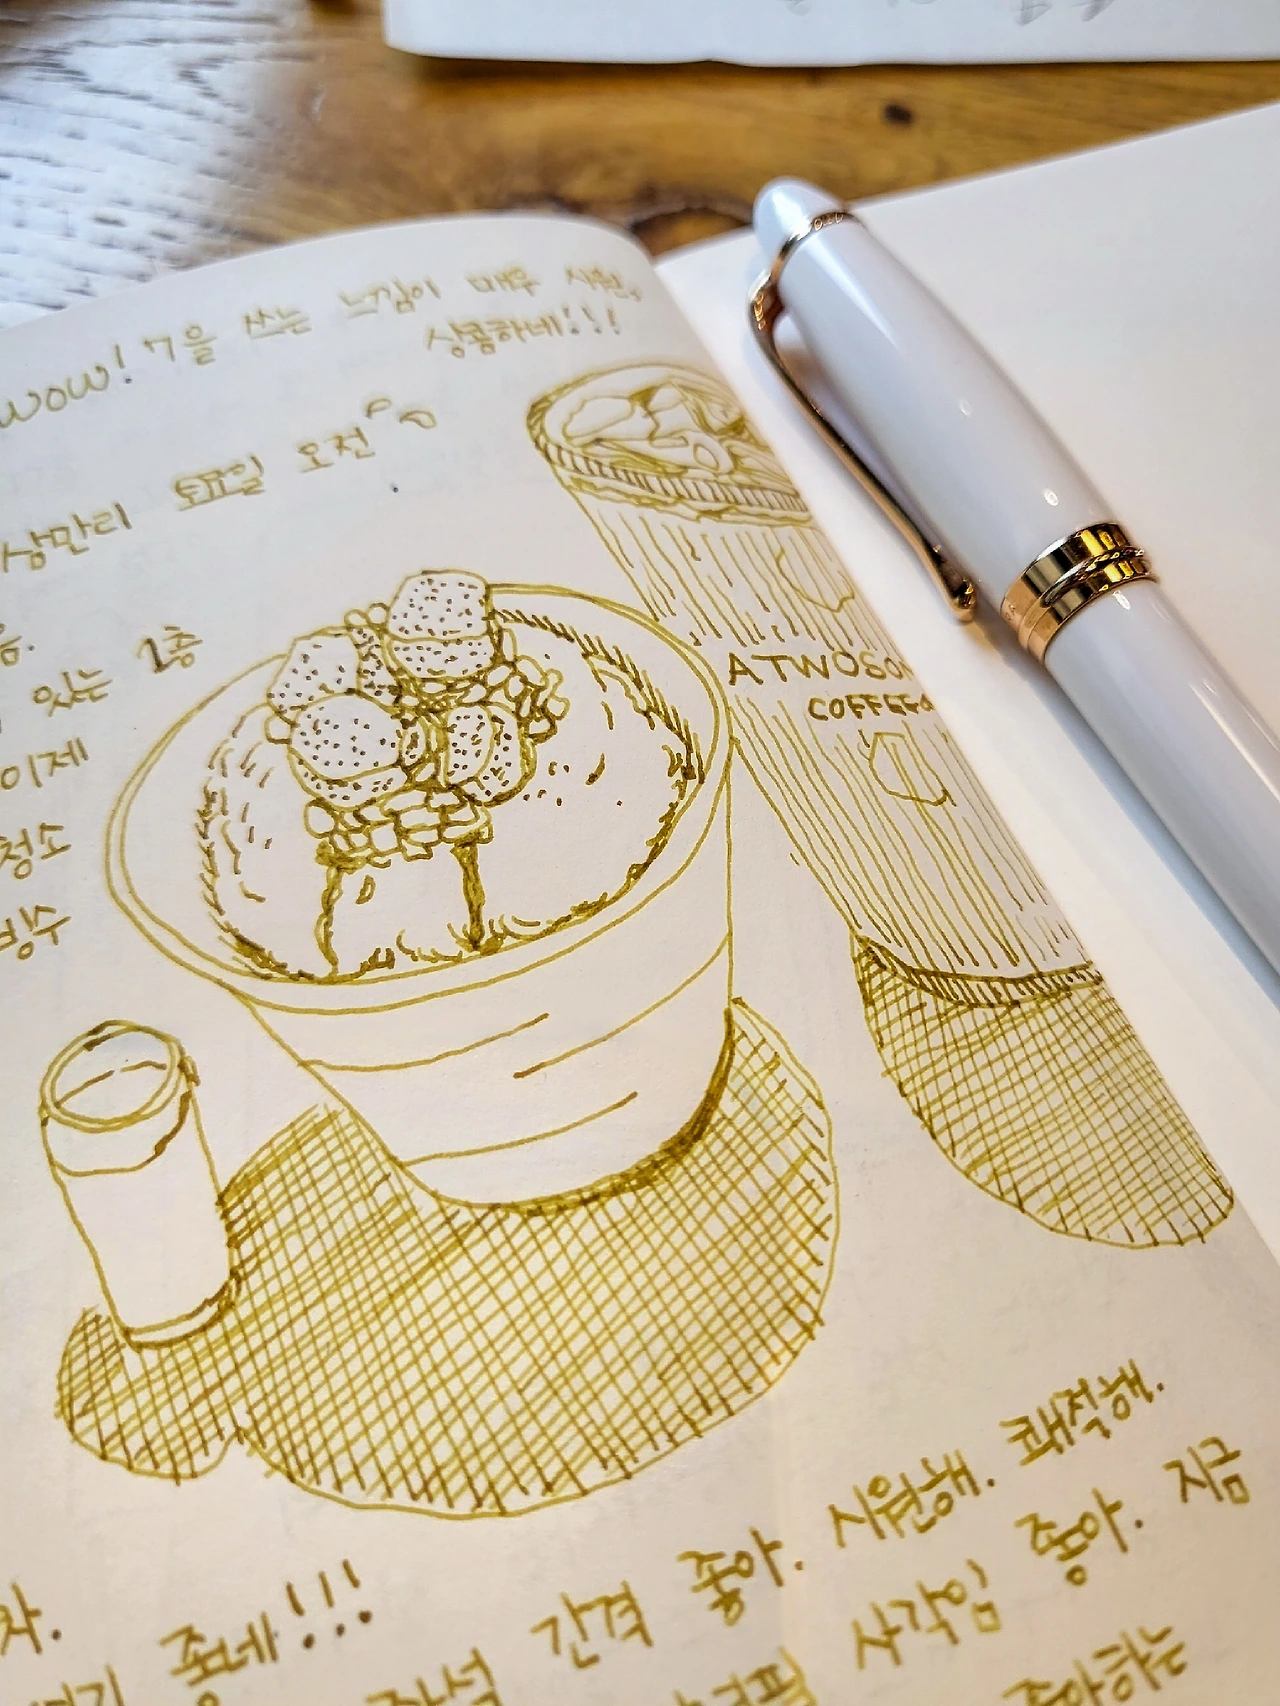 wow! 7을 쓰는 느낌이 매우 시원,
상콤하네!!!
삼만리 토요일 오전
음.
있는 1층
이제
청소
빙수
ATWOSO
COFFEE
차.
좋네!!!
간격 좋아. 시원해. 쾌적해.
사각임 좋아. 지금
좋아하는